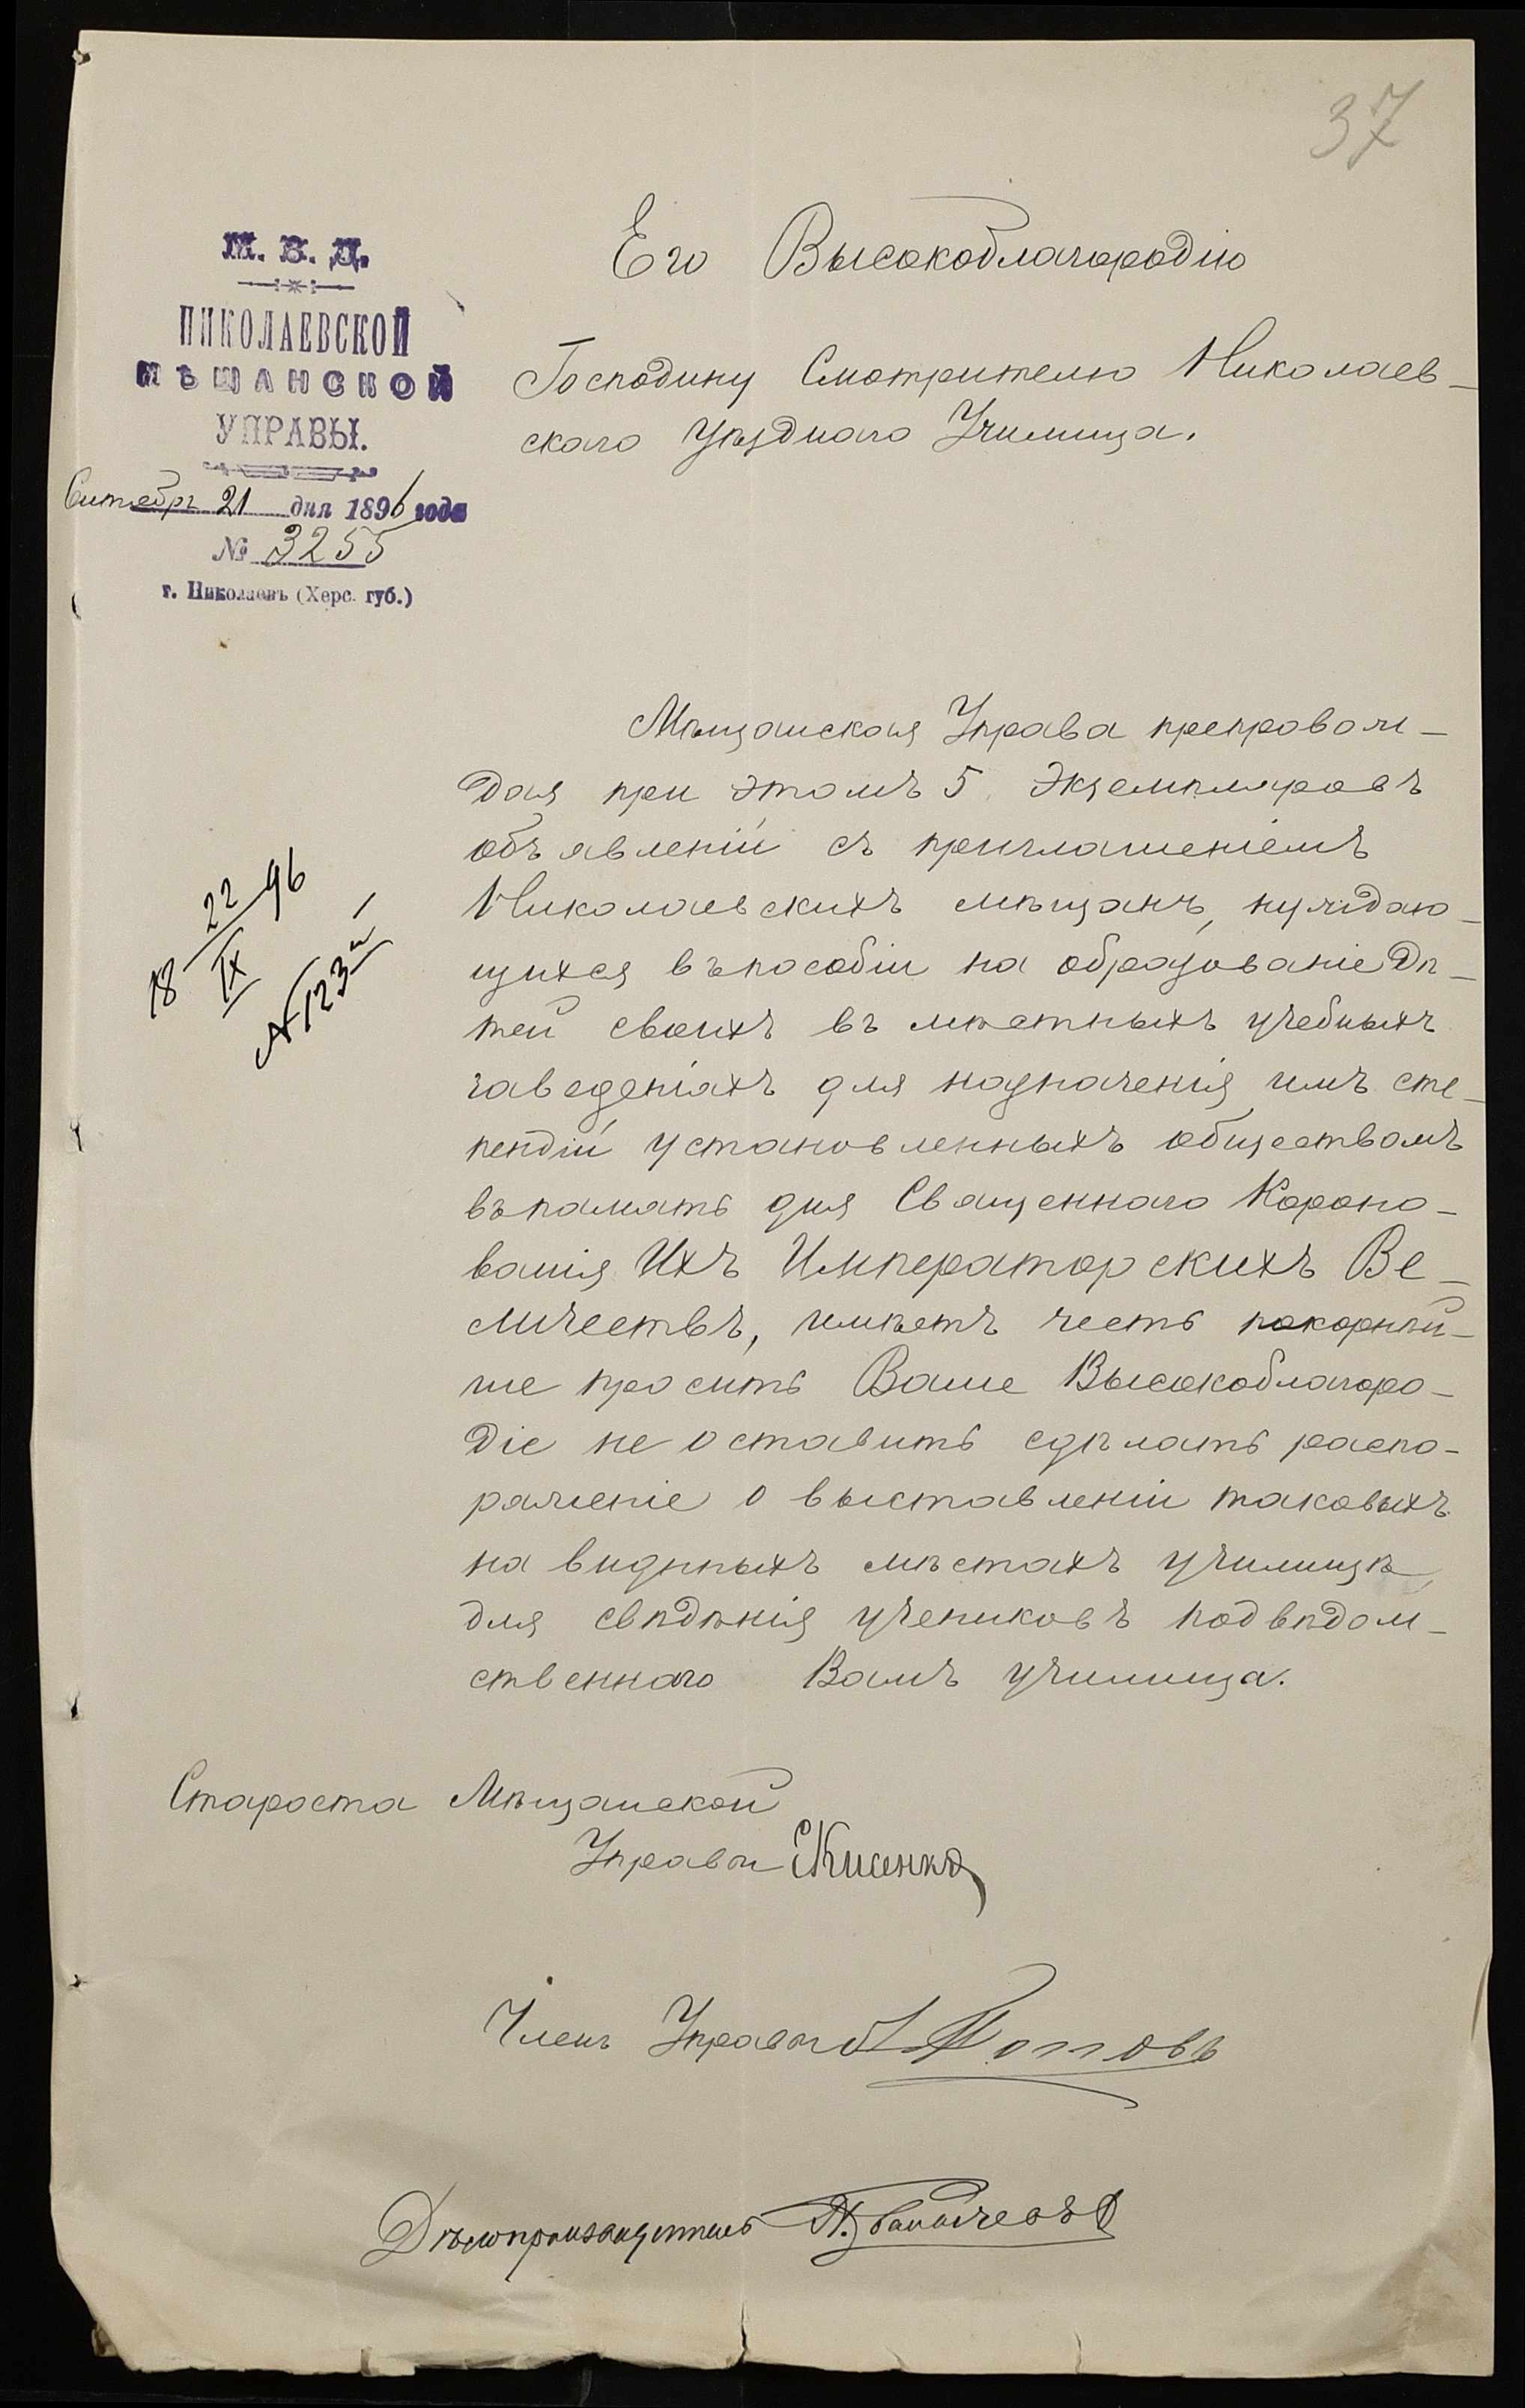 37
М. В. Д.
НИКОЛАЕВСКОЙ
МѢЩАНСКОЙ
УПРАВЫ.
Сентябрь 21 дня 1896 года
№ 3255
г. Николаевъ (Херс. губ.)
Его Высокоблагородію
Господину Смотрителю Николаев-
скаго Уѣзднаго Училища.
Мѣщанская Управа препровож-
дая при этомъ 5 экземпляровъ
объявленій съ приглашеніемъ
Николаевскихъ мѣщанъ, нуждаю-
щихся въ пособіи на образованіе дѣ-
тей своихъ въ мѣстныхъ учебныхъ
заведеніяхъ для назначенія имъ сти-
пендій установленныхъ обществомъ
въ память дня Священнаго Короно-
ванія Ихъ Императорскихъ Ве-
личествъ, имѣетъ честь покорнѣй-
ше просить Ваше Высокоблагоро-
діе не оставить сдѣлать распо-
ряженіе о выставленіи таковыхъ
на видныхъ мѣстахъ училища,
для свѣдѣнія учениковъ подвѣдом-
ственнаго Вамъ училища.
18 22/IX 96
№ 123
Староста Мѣщанской
Управы
Членъ Управы Поповъ
Дѣлопроизводитель